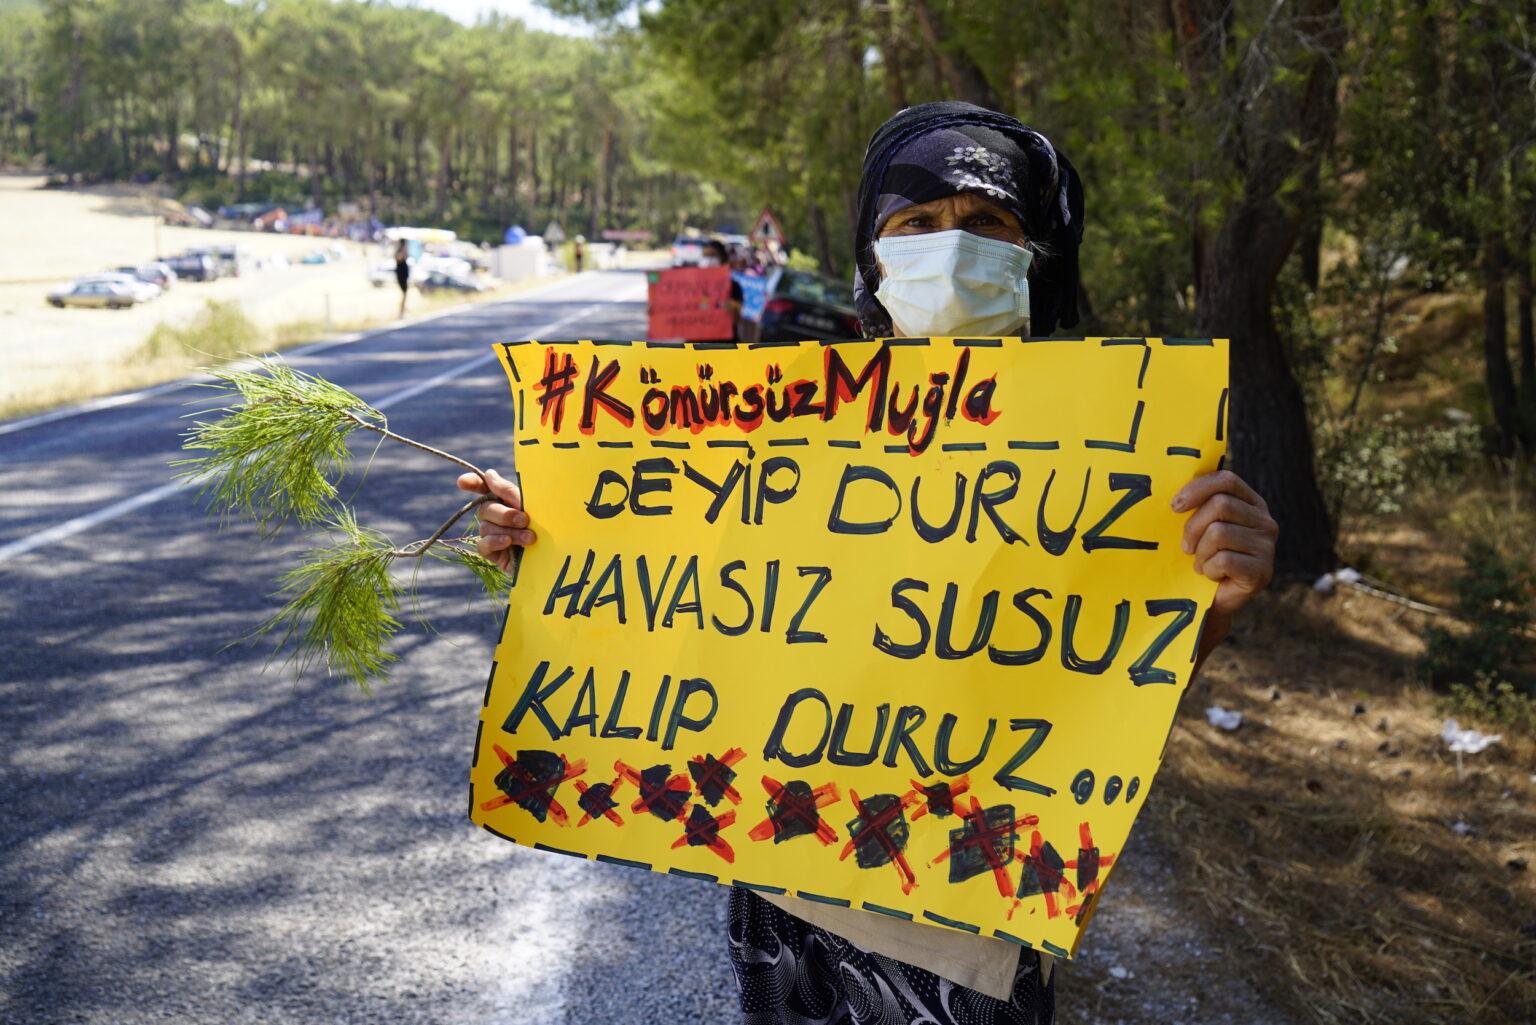 #KömürsüzMuğla
DEYİP DURUZ
HAVASIZ SUSUZ
KALIP DURUZ...